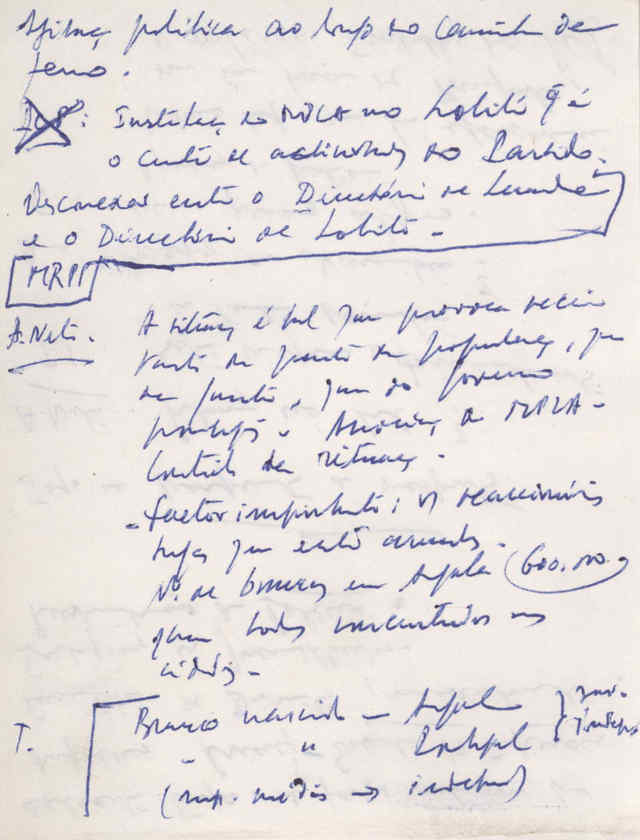 política ao longo do Caminho de
Ferro.
Instalaç do MPLA no Lobito q é
o centro de actividades do Partido.
Desconexão entre o Directório de Luanda
e o Directório de Lobito -
MRPP
A. Neto. A situaç é tal que provoca receio
tanto da parte da populaç, que
da parte, que do governo
português - da MPLA -
Controle da situaç -
- factor importante: os reaccionários
que estão armados -
Nº de brancos em Angola (600.000)
quase todos concentrados nas
cidades -
T. Branco nascido - Angola
" " Portugal